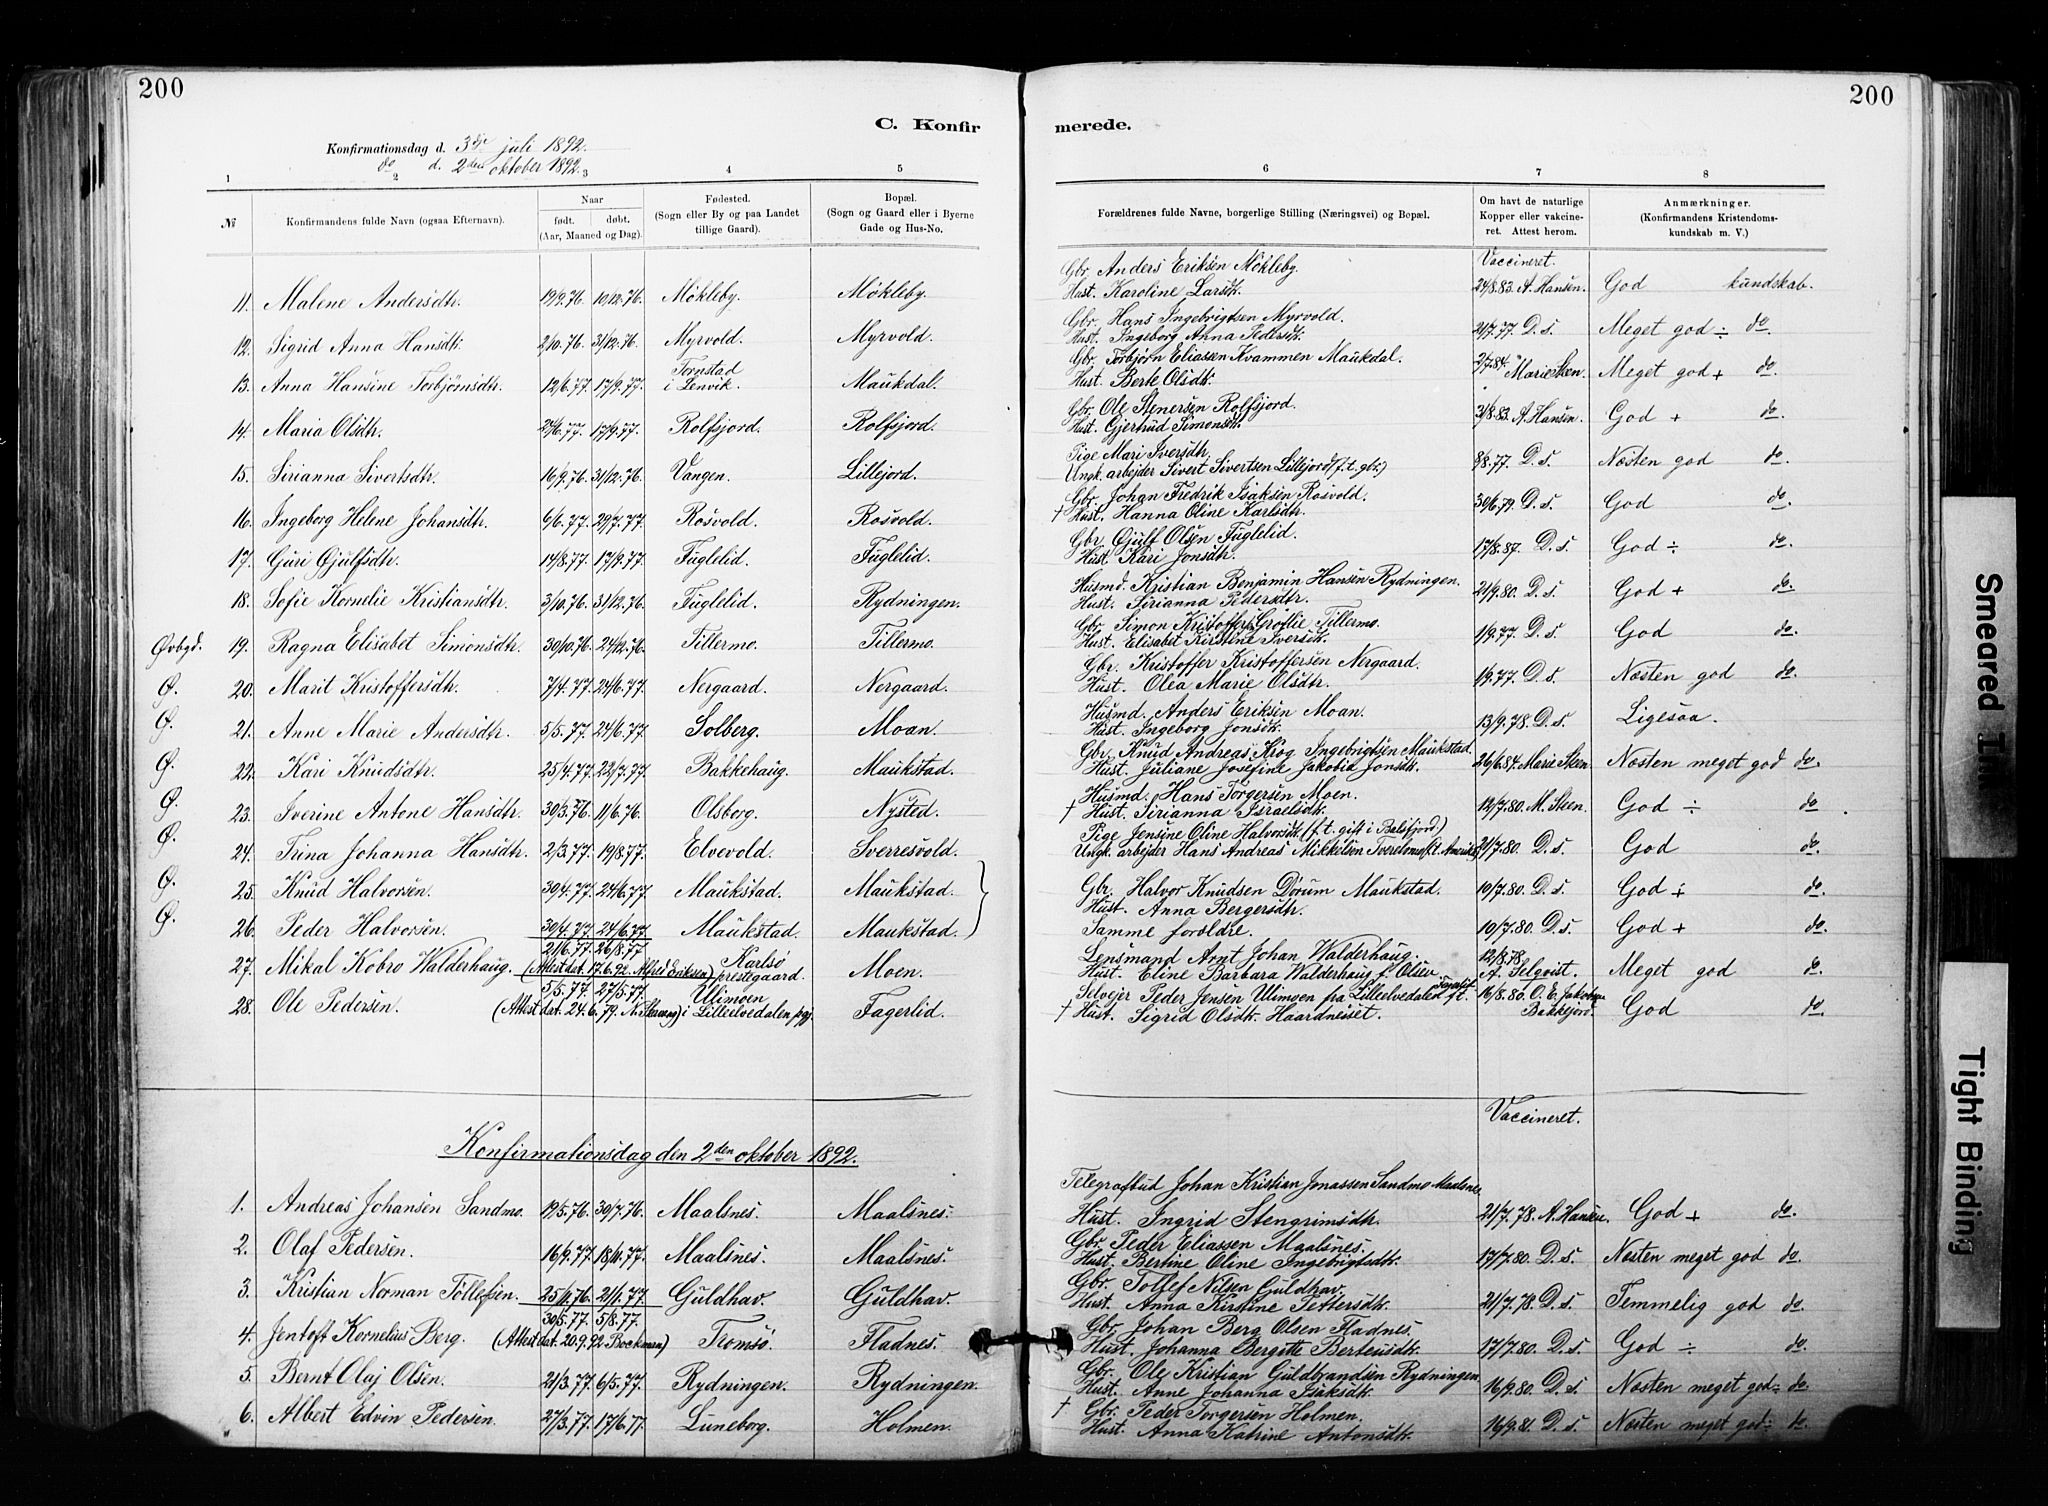 200
200
C. Konfir
merede.
Konfirmationsdag d. 3die juli 1892.
do d. 2den oktober 1892.
1 2 3 4 5 6 7 8
№ Konfirmandens fulde Navn (ogsaa Efternavn).
Naar
født. døbt.
(Aar, Maaned og Dag).
Fødested.
(Sogn eller By og paa Landet
tillige Gaard).
Bopæl.
(Sogn og Gaard eller i Byerne
Gade og Hus-No.
Forældrenes fulde Navne, borgerlige Stilling (Næringsvei) og Bopæl.
Om havt de naturlige
Kopper eller vakcine-
ret. Attest herom.
Anmærkninger.
(Konfirmandens Kristendoms-
kundskab m. V.)
Gbr. Anders Eriksen Møkleby. Vaccineret.
11. Malene Andersdtr. 19/9.76. 10/12.76. Møkleby. Møkleby. Hust. Karoline Larsdtr. 24/8.83. A. Hansen. God kundskab.
Gbr. Hans Ingebrigtsen Myrvold.
12. Sigrid Anna Hansdtr. 2/10.76. 31/12.76. Myrvold. Myrvold. Hust. Ingeborg Anna Pedersdtr. 21/7.77. D. s. Meget god ÷ do.
Gbr. Torbjørn Eliassen Kvammen Maukdal.
13. Anna Hansine Torbjørnsdtr. 12/6.77. 17/9.77. Tornstad i Lenvik. Maukdal. Hust. Berte Olsdtr. 2/7.84. Marie Steen. Meget god + do.
Gbr. Ole Stenersen Rolfsjord.
14. Maria Olsdtr. 27/6.77. 17/9.77. Rolfsjord. Rolfsjord. Hust. Gjertrud Simonsdtr. 31/8.83. A. Hansen. God + do.
Pige Mari Iversdtr.
15. Sirianna Sivertsdtr. 16/9.76. 31/12.76. Vangen. Lillejord. Ungk. arbejder Sivert Sivertsen Lillejord (f. t. gbr.) 8/8.77. D. s. Næsten god do.
Gbr. Johan Fredrik Isaksen Rosvold.
16. Ingeborg Helene Johansdtr. 6/6.77. 29/7.77. Rosvold. Rosvold. † Hust. Hanna Oline Karlsdtr. 30/6.79. D. s. God do.
Gbr. Gjulf Olsen Fuglelid.
17. Guri Gjulfsdtr. 14/8.77. 17/9.77. Fuglelid. Fuglelid. Hust. Kari Jonsdtr. 17/8.87. D. s. God ÷ do.
Husmd. Kristian Benjamin Hansen Rydningen.
18. Sofie Kornelie Kristiansdtr. 3/10.76. 31/12.76. Fuglelid. Rydningen. Hust. Sirianna Pedersdtr. 21/9.80. D. s. God + do.
Gbr. Simon Kristoffers. Grøtlie Tillermo.
Øvbgd. 19. Ragna Elisabet Simonsdtr. 30/10.76. 24/12.76. Tillermo. Tillermo. Hust. Elisabet Kirstine Iversdtr. 1/9.77. D. s. God do.
Gbr. Kristoffer Kristoffersen Nergaard.
Ø. 20. Marit Kristoffersdtr. 7/4.77. 24/6.77. Nergaard. Nergaard. Hust. Olea Marie Olsdtr. 1/9.77. D. s. Næsten god do.
Husmd. Anders Eriksen Moan.
Ø. 21. Anne Marie Andersdtr. 5/5.77. 24/6.77. Solberg. Moan. Hust. Ingeborg Jonsdtr. 13/9.78. D. s. Ligesaa.
Gbr. Knud Andreas Krog Ingebrigtsen Maukstad.
Ø. 22. Kari Knudsdtr. 25/4.77. 22/7.77. Bakkehaug. Maukstad. Hust. Juliane Josefine Jakobia Jonsdtr. 26/6.84. Marie Steen. Næsten meget god do.
Husmd. Hans Torgersen Moen.
Ø. 23. Iverine Antone Hansdtr. 30/3.76. 11/6.76. Olsborg. Nysted. † Hust. Sirianna Israelsdtr. 12/7.80. M. Steen. God ÷ do.
Pige Jensine Oline Halvorsdtr. (f. t. gift i Balsfjord)
Ø. 24. Trina Johanna Hansdtr. 2/3.77. 19/8.77. Elvevold. Sverresvold. Ungk. arbejder Hans Andreas Mikkelsen 21/7.80. D. s. God do.
Ø. 25. Knud Halvorsen. 30/4.77. 24/6.77. Maukstad. Maukstad. Gbr. Halvor Knudsen Dørum Maukstad. 10/7.80. D. s. God ÷ do.
Hust. Anna Bergersdtr.
Ø. 26. Peder Halvorsen. 30/4.77. 24/6.77. Maukstad. Maukstad. Samme foreldre. 10/7.80. D. s. God + do.
21/6.77. 26/8.77 Karlsø Lensmand Arnt Johan Walderhaug. 12/8.78.
27. Mikal Kobro Walderhaug. (Attest dat. 17.6.92. Alfred Eriksen) prestegaard. Moen. Hust. Eline Barbara Walderhaug f. Olsen A. Selqvist. Meget god do.
5/5.77. 27/5.77. Ulimoen Selvejer Peder Jensen Ulimoen fra Lilleelvedalen f. t. 16/8.80. O. E. Jakobsen
28. Ole Pedersen. (Attest dat. 24.6.79. ) i Lilleelvedalen pgj. Fagerlid. † Hust. Sigrid Olsdtr. Haardneiset. Bakkejord. God do.
Vaccineret.
Konfirmationsdag den 2den oktober 1892.
Telegrafbud Johan Kristian Jonassen Sandmo Maalsnes.
1. Andreas Johansen Sandmo. 19/5.76. 30/7.76. Maalsnes. Maalsnes. Hust. Ingrid Stengrimsdtr. 21/7.78. A. Hansen. God + do.
Gbr. Peder Eliassen Maalsnes.
2. Olaf Pedersen. 16/9.77. 18/11.77. Maalsnes. Maalsnes. Hust. Bertine Oline Ingebrigtsdtr. 17/7.80. D. s. Næsten meget god do.
Gbr. Tollef Nilsen Guldhav.
3. Kristian Norman Tollefsen. 25/11.76. 21/1.77. Guldhav. Guldhav. Hust. Anna Kirstine Pettersdtr. 21/7.78. D. s. Temmelig god do.
30/5.77. 5/8.77. Gbr. Johan Berg Olsen Fladnes.
4. Jentoft Kornelius Berg. (Attest dat. 20.9.92 Bockman) Tromsø. Fladnes. Hust. Johanna Bergitte Berteusdtr. 17/7.80. D. s. God ÷ do.
Gbr. Ole Kristian Guldbrandsen Rydningen.
5. Bernt Olaj Olsen. 21/3.77. 6/5.77. Rydningen. Rydningen. Hust. Anne Johanna Isaksdtr. 16/9.80. D. s. Næsten meget god ÷ do.
† Gbr. Peder Torgersen Holmen.
6. Albert Edvin Pedersen. 27/3.77. 17/6.77. Luneborg. Holmen. Hust. Anna Katrine Antonsdtr. 16/9.81. D. s. Næsten meget god ÷ do.
Smeared Ink
Tight Binding